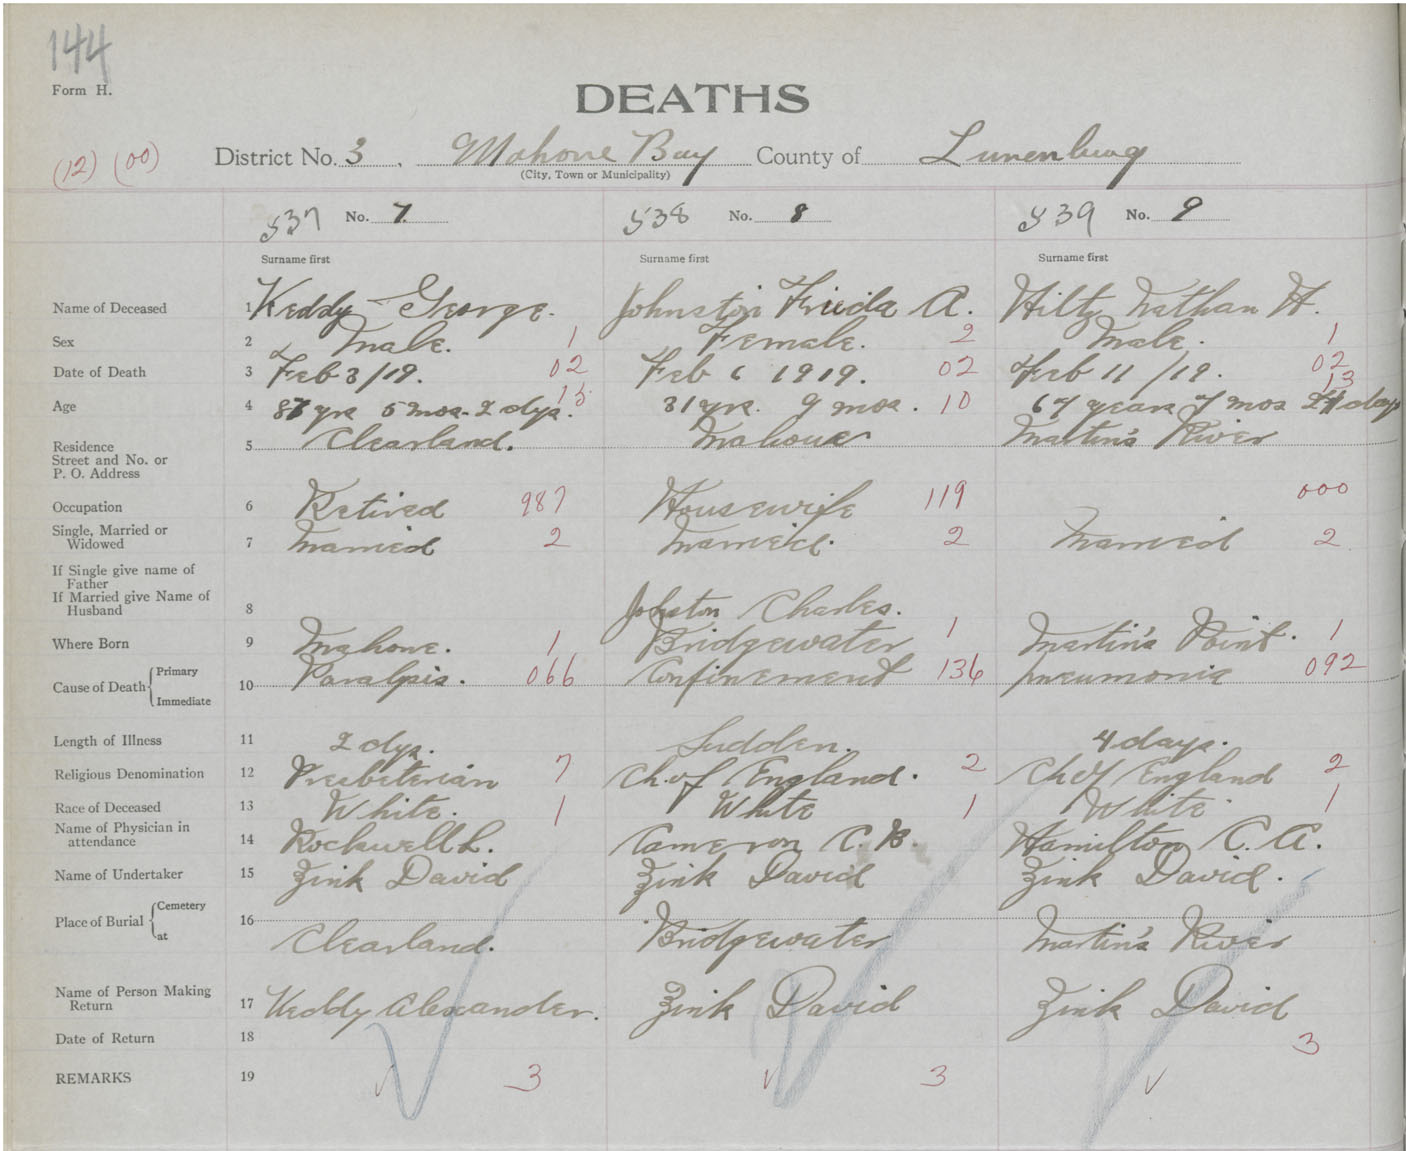 144
Form H.
DEATHS
(12) (00) District No. 3, Mahone Bay County of Lunenburg
(City, Town or Municipality)
537 No. 7 538 No. 8 539 No. 9
Surname first Surname first Surname first
Name of Deceased 1 Keddy George. Johnston Frieda A. Hiltz Nathan H.
Sex 2 Male. 1 Female. 2 Male. 1
Date of Death 3 Feb 3/19. 02 Feb 6 1919. 02 Feb 11/19. 02
Age 4 yrs 5 mos. 2 dys. 15 31 yrs. 9 mos. 10 67 years 7 mos days 13
Residence 5 Clearland. Mahone Martin's River
Street and No. or
P. O. Address
Occupation 6 Retired 987 Housewife 119 000
Single, Married or
Widowed 7 Married 2 Married. 2 Married 2
If Single give name of
Father
If Married give Name of
Husband 8 Johston Charles.
Where Born 9 Mahone. 1 Bridgewater 1 Martin's Point. 1
Cause of Death { Primary
Immediate 10 Paralysis. 066 Confinement 136 Pneumonia 092
Length of Illness 11 2 dys. Sudden. 4 days.
Religious Denomination 12 Presbeterian 7 Ch. of England. 2 Ch of England 2
Race of Deceased 13 White. 1 White 1 White 1
Name of Physician in
attendance 14 Rockwell L. Cameron C. B. Hamilton C. A.
Name of Undertaker 15 Zink David Zink David Zink David.
Place of Burial { Cemetery
at 16 Clearland. Bridgewater Martin's River
Name of Person Making
Return 17 Keddy Alexander. Zink David Zink David
Date of Return 18 3
REMARKS 19 3 3